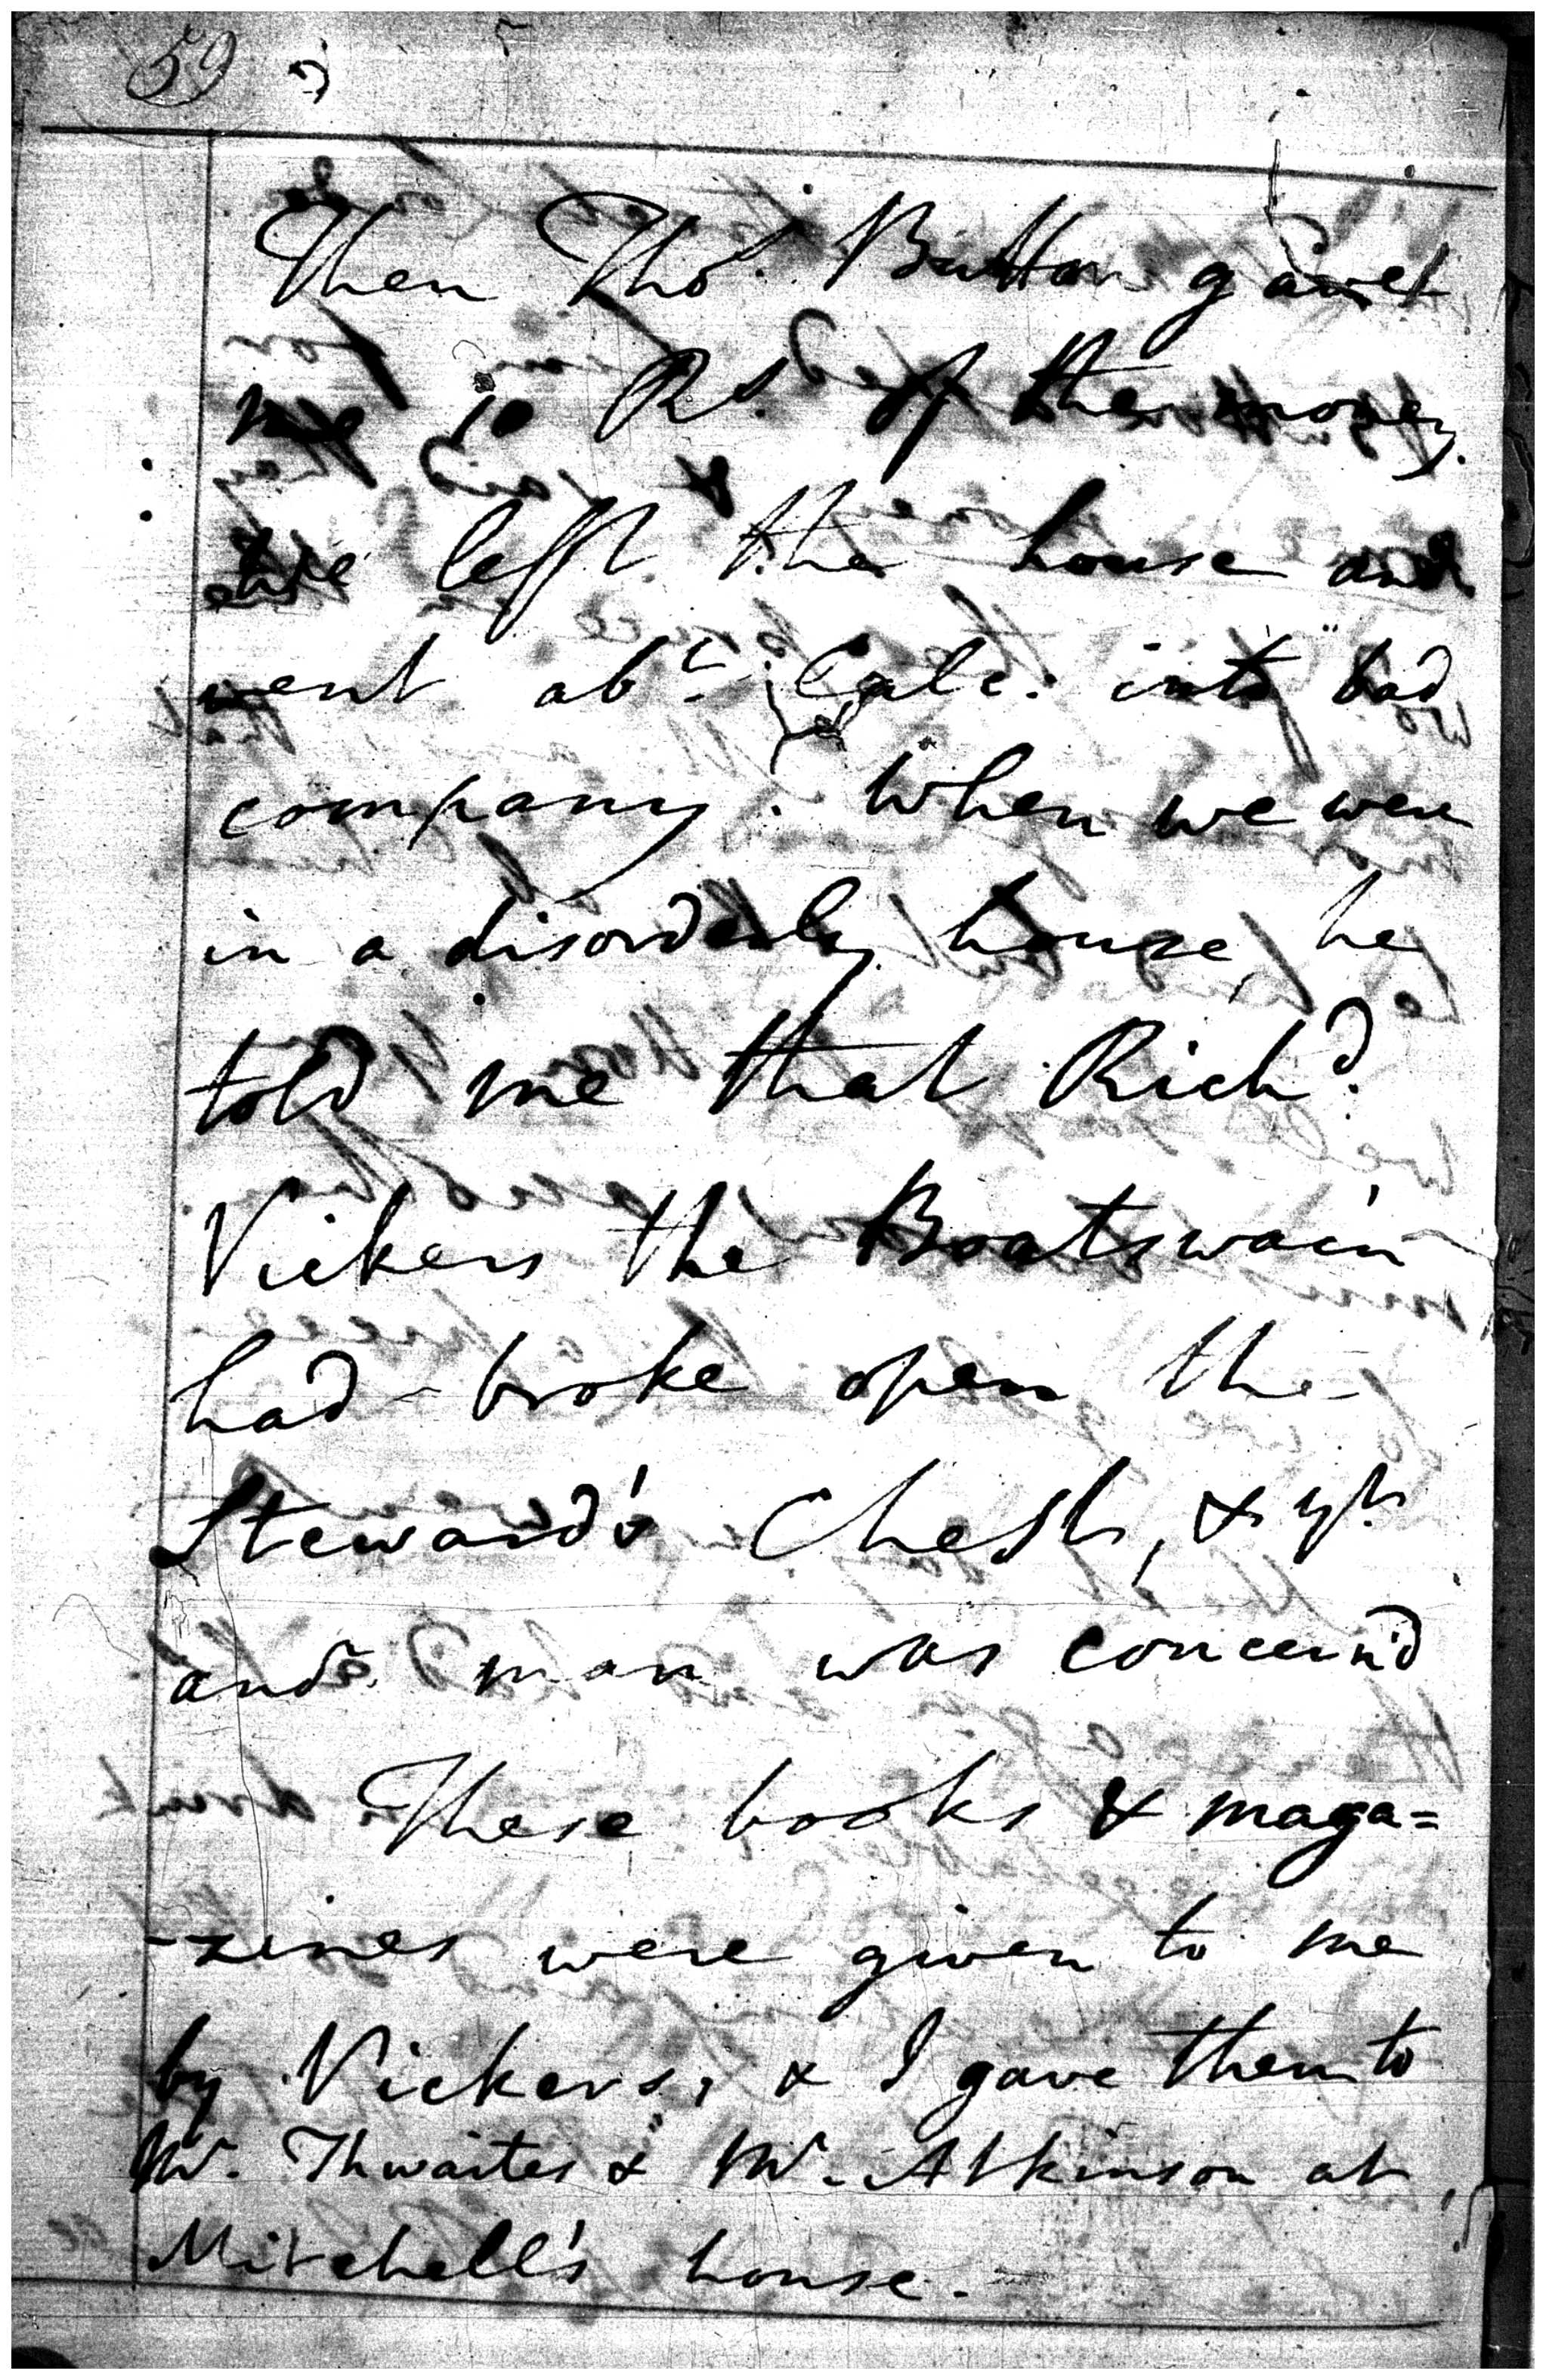 59
Then Tho.s Button gave
me 10 Rs. of the money.
We left the house and
went ab.t Calc. into bad
company. When we were
in a disorderly house, he
told me that Rich.d
Vickers the Boatswain
had broke open the
Steward's Chest, & y.t
and.r man was concern'd
These books & maga=
-zines were given to me
by Vickers, & I gave them to
Mr. Thwaites & Mr. Atkinson at
Mitchell's house.